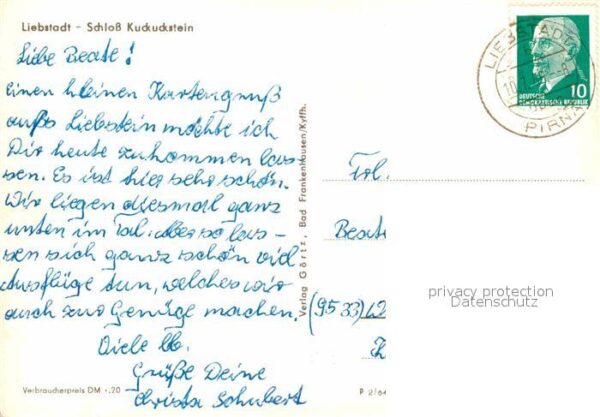 Liebstadt - Schloß Kuckuckstein
Liebe Beate!
einen kleinen Kartengruß
aus Liebstein möchte ich
Dir heute zukommen las-
sen. Es ist hier sehr schön.
Wir liegen diesmal ganz
unten im Tal. Aber so las-
sen sich ganz schön viel
Ausflüge tun, welches wir
auch zur Genüge machen.
Viele lb.
Grüße Deine
Christa Schubert
Verbraucherpreis DM -.20
Verlag Görtz, Bad Frankenhausen/Kyffh.
P 2/64
LIEBSTADT
PIRNA
10
DEUTSCHE
DEMOKRATISCHE REPUBLIK
Frl.
Beate
(9533)
privacy protection
Datenschutz